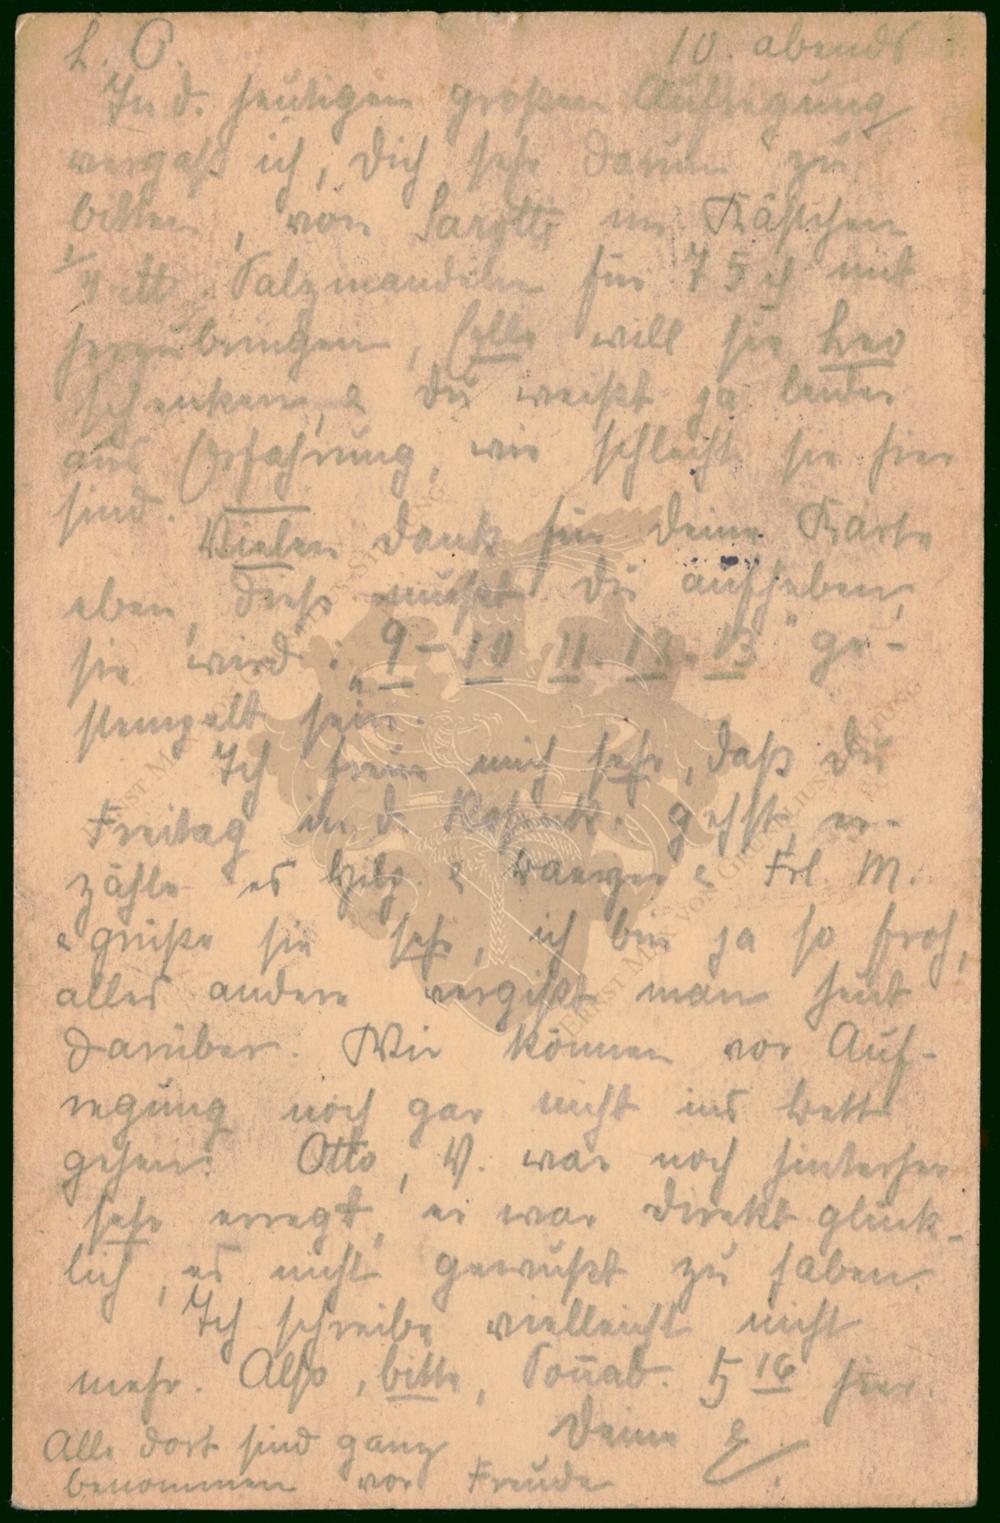 L. O. 10. abends
In d. heutigen großen Aufregung
vergaß ich, Dich sehr darum zu
bitten, von Sarotti im Kästchen
1/4 Salzmandeln für 75 mit
herzubringen, will sie Leo
schenken, & Du weißt ja leider
aus Erfahrung, wie schlecht sie hier
sind.
Vielen Dank für Deine Karte
eben, diese mußt Du aufheben,
sie wird: "9 – 10 11. 12. 13" ge-
stempelt sein.
Ich freue mich sehr, daß Du
Freitag in d. gehst, er-
zähle es & & Frl. M.
& grüße sie sehr, ich bin ja so froh,
alles andere vergißt man heut
darüber. Wir können vor Auf-
regung noch gar nicht ins Bett
gehen! Otto, V. war noch hinterher
sehr erregt, er war direkt glück-
lich, es nicht gewußt zu haben.
Ich schreibe vielleicht nicht
mehr. Also, bitte, Sonnab. 5 16 hier.
Deine E.
Alle dort sind ganz
benommen vor Freude
ERNST MAX VON GRUNELIUS-STIFTUNG